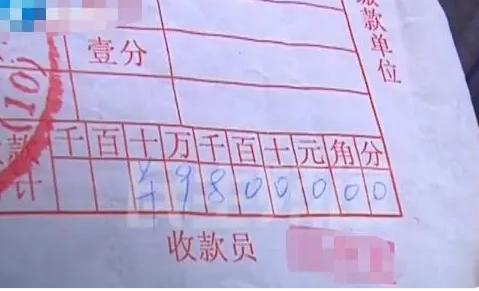 缴款单位
壹分
(10)
款 千 百 十 万 千 百 十 元 角 分
计 ¥ 9 8 0 0 0 0 0
收款员